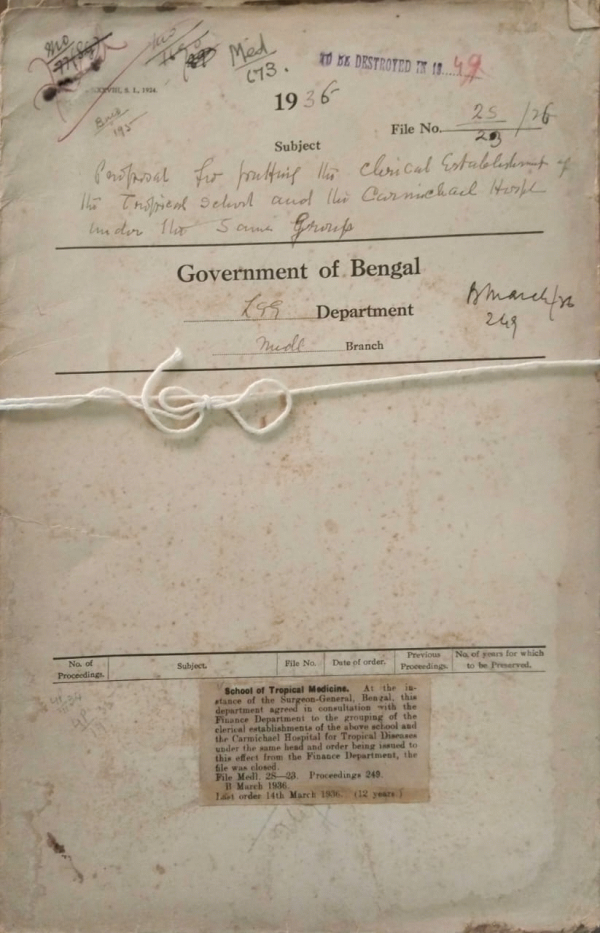 Med
673.
TO BE DESTROYED IN 19....49
XXVIII, S. I., 1934.
1936
File No. 2S/23 /36
Subject
Proposal for putting the clerical Establishment of
the Tropical School and the Carmichael Hospl
under the Same Group
Government of Bengal
Department
B March/36
249
Medl Branch
No. of Proceedings. Subject. File No. Date of order. Previous Proceedings. No. of years for which to be Preserved.
School of Tropical Medicine. At the in-
stance of the Surgeon-General, Bengal, this
department agreed in consultation with the
Finance Department to the grouping of the
clerical establishments of the above school and
the Carmichael Hospital for Tropical Diseases
under the same head and order being issued to
this effect from the Finance Department, the
file was closed.
File Medl. 2S—23. Proceedings 249.
B March 1936.
Last order 14th March 1936. (12 years)